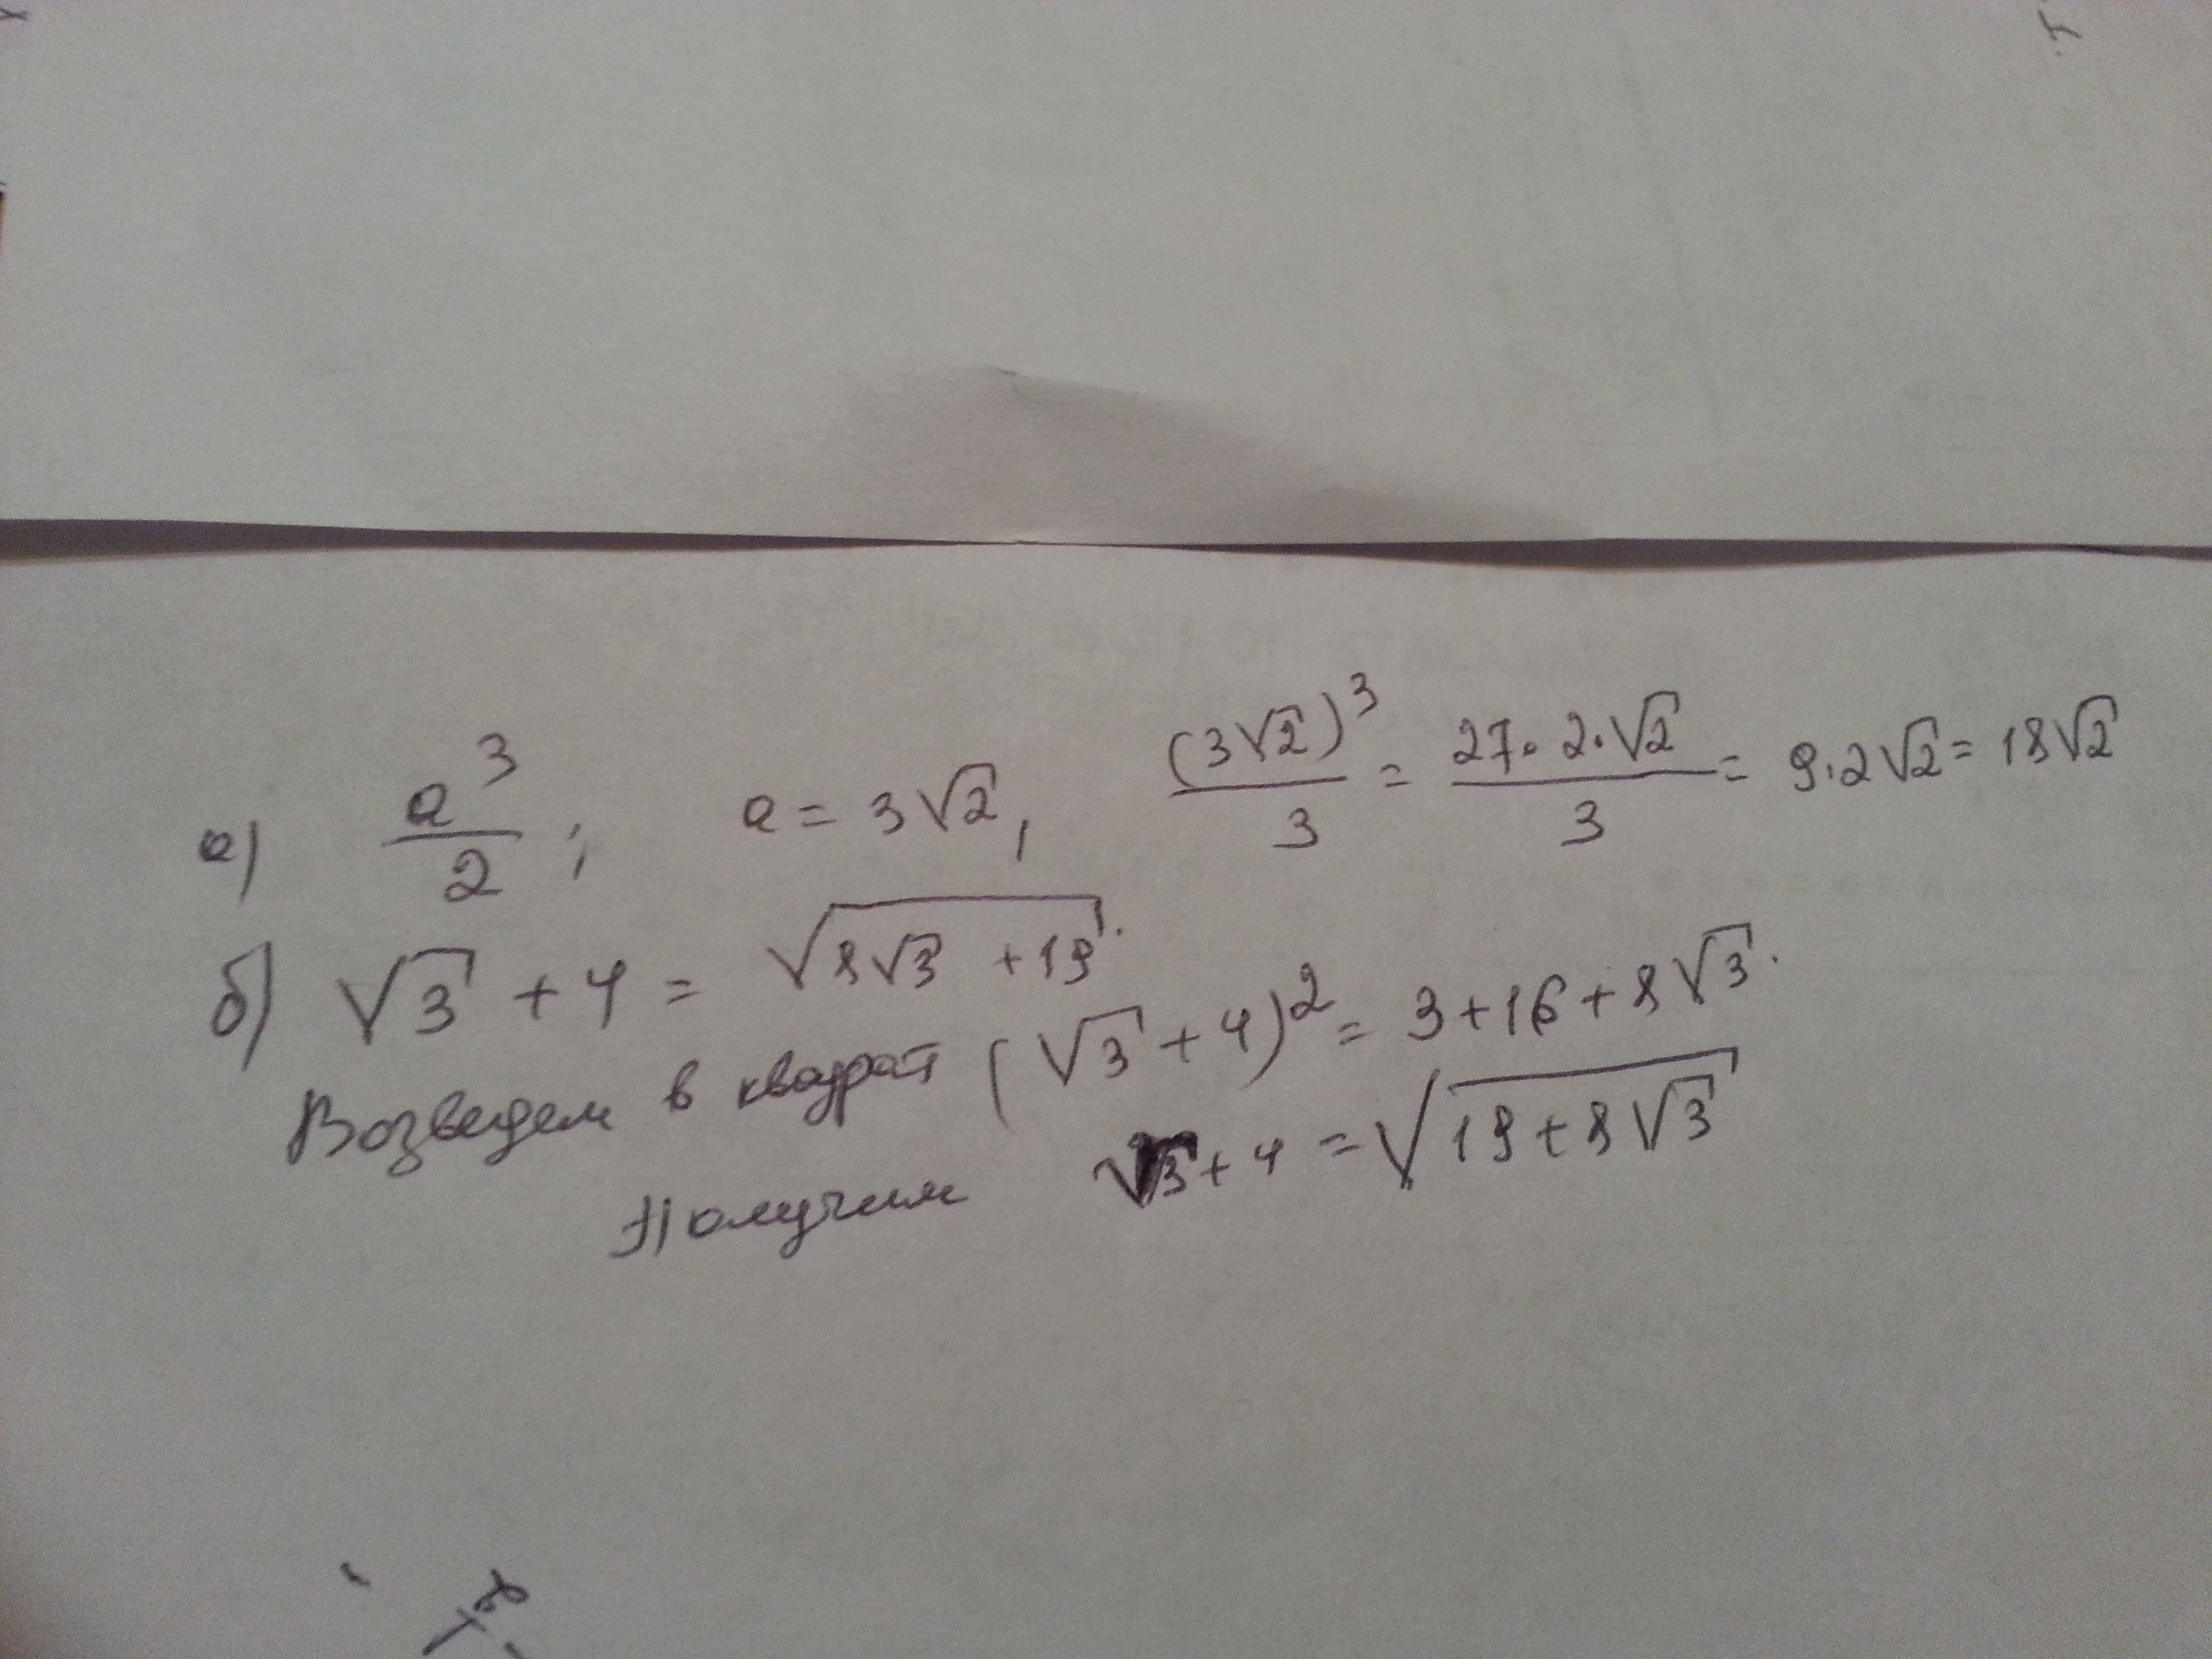 а) a³/2 ; a = 3√2, (3√2)³/3 = 27·2·√2/3 = 9·2√2 = 18√2
б) √3 + 4 = √(8√3 + 19).
Возведем в квадрат (√3 + 4)² = 3 + 16 + 8√3.
Получим √3 + 4 = √(19 + 8√3)